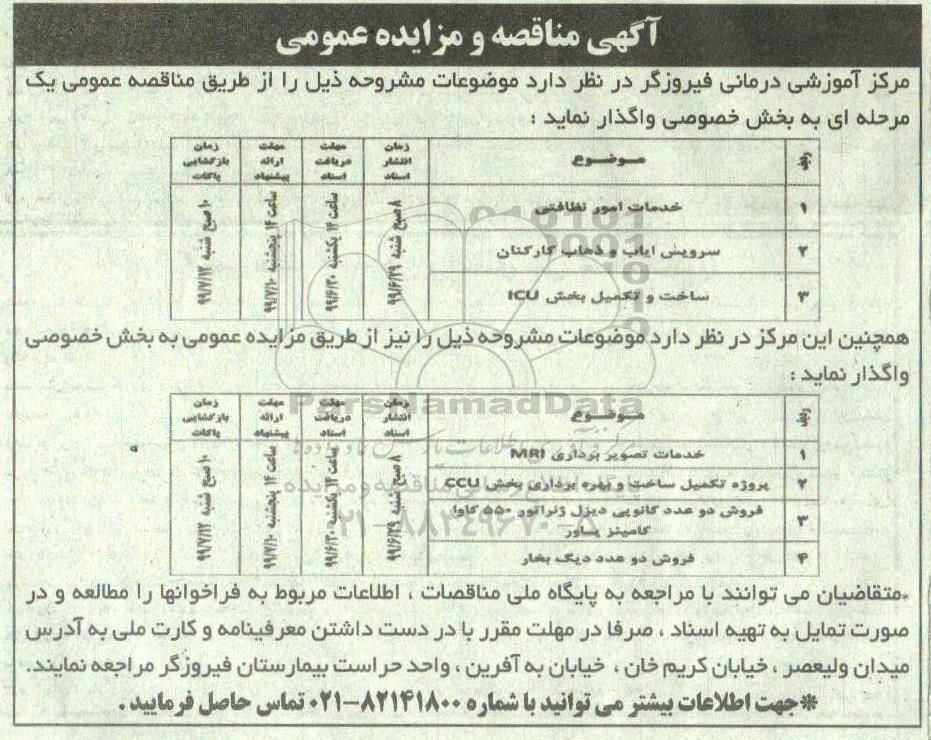 آگهی مناقصه و مزایده عمومی
مرکز آموزشی درمانی فیروزگر در نظر دارد موضوعات مشروحه ذیل را از طریق مناقصه عمومی یک
مرحله ای به بخش خصوصی واگذار نماید :
ردیف موضوع زمان انتشار اسناد مهلت دریافت اسناد مهلت ارائه پیشنهاد زمان بازگشایی پاکات
۱ خدمات امور نظافتی
۲ سرویس ایاب و ذهاب کارکنان
۳ ساخت و تکمیل بخش ICU
۸ صبح شنبه ۹۹/۶/۲۹
ساعت ۱۴ یکشنبه ۹۹/۶/۳۰
ساعت ۱۴ پنجشنبه ۹۹/۷/۱۰
۱۰ صبح شنبه ۹۹/۷/۱۲
همچنین این مرکز در نظر دارد موضوعات مشروحه ذیل را نیز از طریق مزایده عمومی به بخش خصوصی
واگذار نماید :
ParsNamadData
ردیف موضوع زمان انتشار اسناد مهلت دریافت اسناد مهلت ارائه پیشنهاد زمان بازگشایی پاکات
۱ خدمات تصویر برداری MRI
۲ پروژه تکمیل ساخت و بهره برداری بخش CCU
۳ فروش دو عدد کانوپی دیزل ژنراتور ۵۵۰ کاوا
کامینز پاور
۴ فروش دو عدد دیگ بخار
۸ صبح شنبه ۹۹/۶/۲۹
ساعت ۱۴ یکشنبه ۹۹/۶/۳۰
ساعت ۱۴ پنجشنبه ۹۹/۷/۱۰
۱۰ صبح شنبه ۹۹/۷/۱۲
۰۲۱-۸۸۳۴۹۶۷۰-۵
*متقاضیان می توانند با مراجعه به پایگاه ملی مناقصات ، اطلاعات مربوط به فراخوانها را مطالعه و در
صورت تمایل به تهیه اسناد ، صرفا در مهلت مقرر با در دست داشتن معرفینامه و کارت ملی به آدرس
میدان ولیعصر ، خیابان کریم خان ، خیابان به آفرین ، واحد حراست بیمارستان فیروزگر مراجعه نمایند.
*جهت اطلاعات بیشتر می توانید با شماره ۸۲۱۴۱۸۰۰-۰۲۱ تماس حاصل فرمایید .